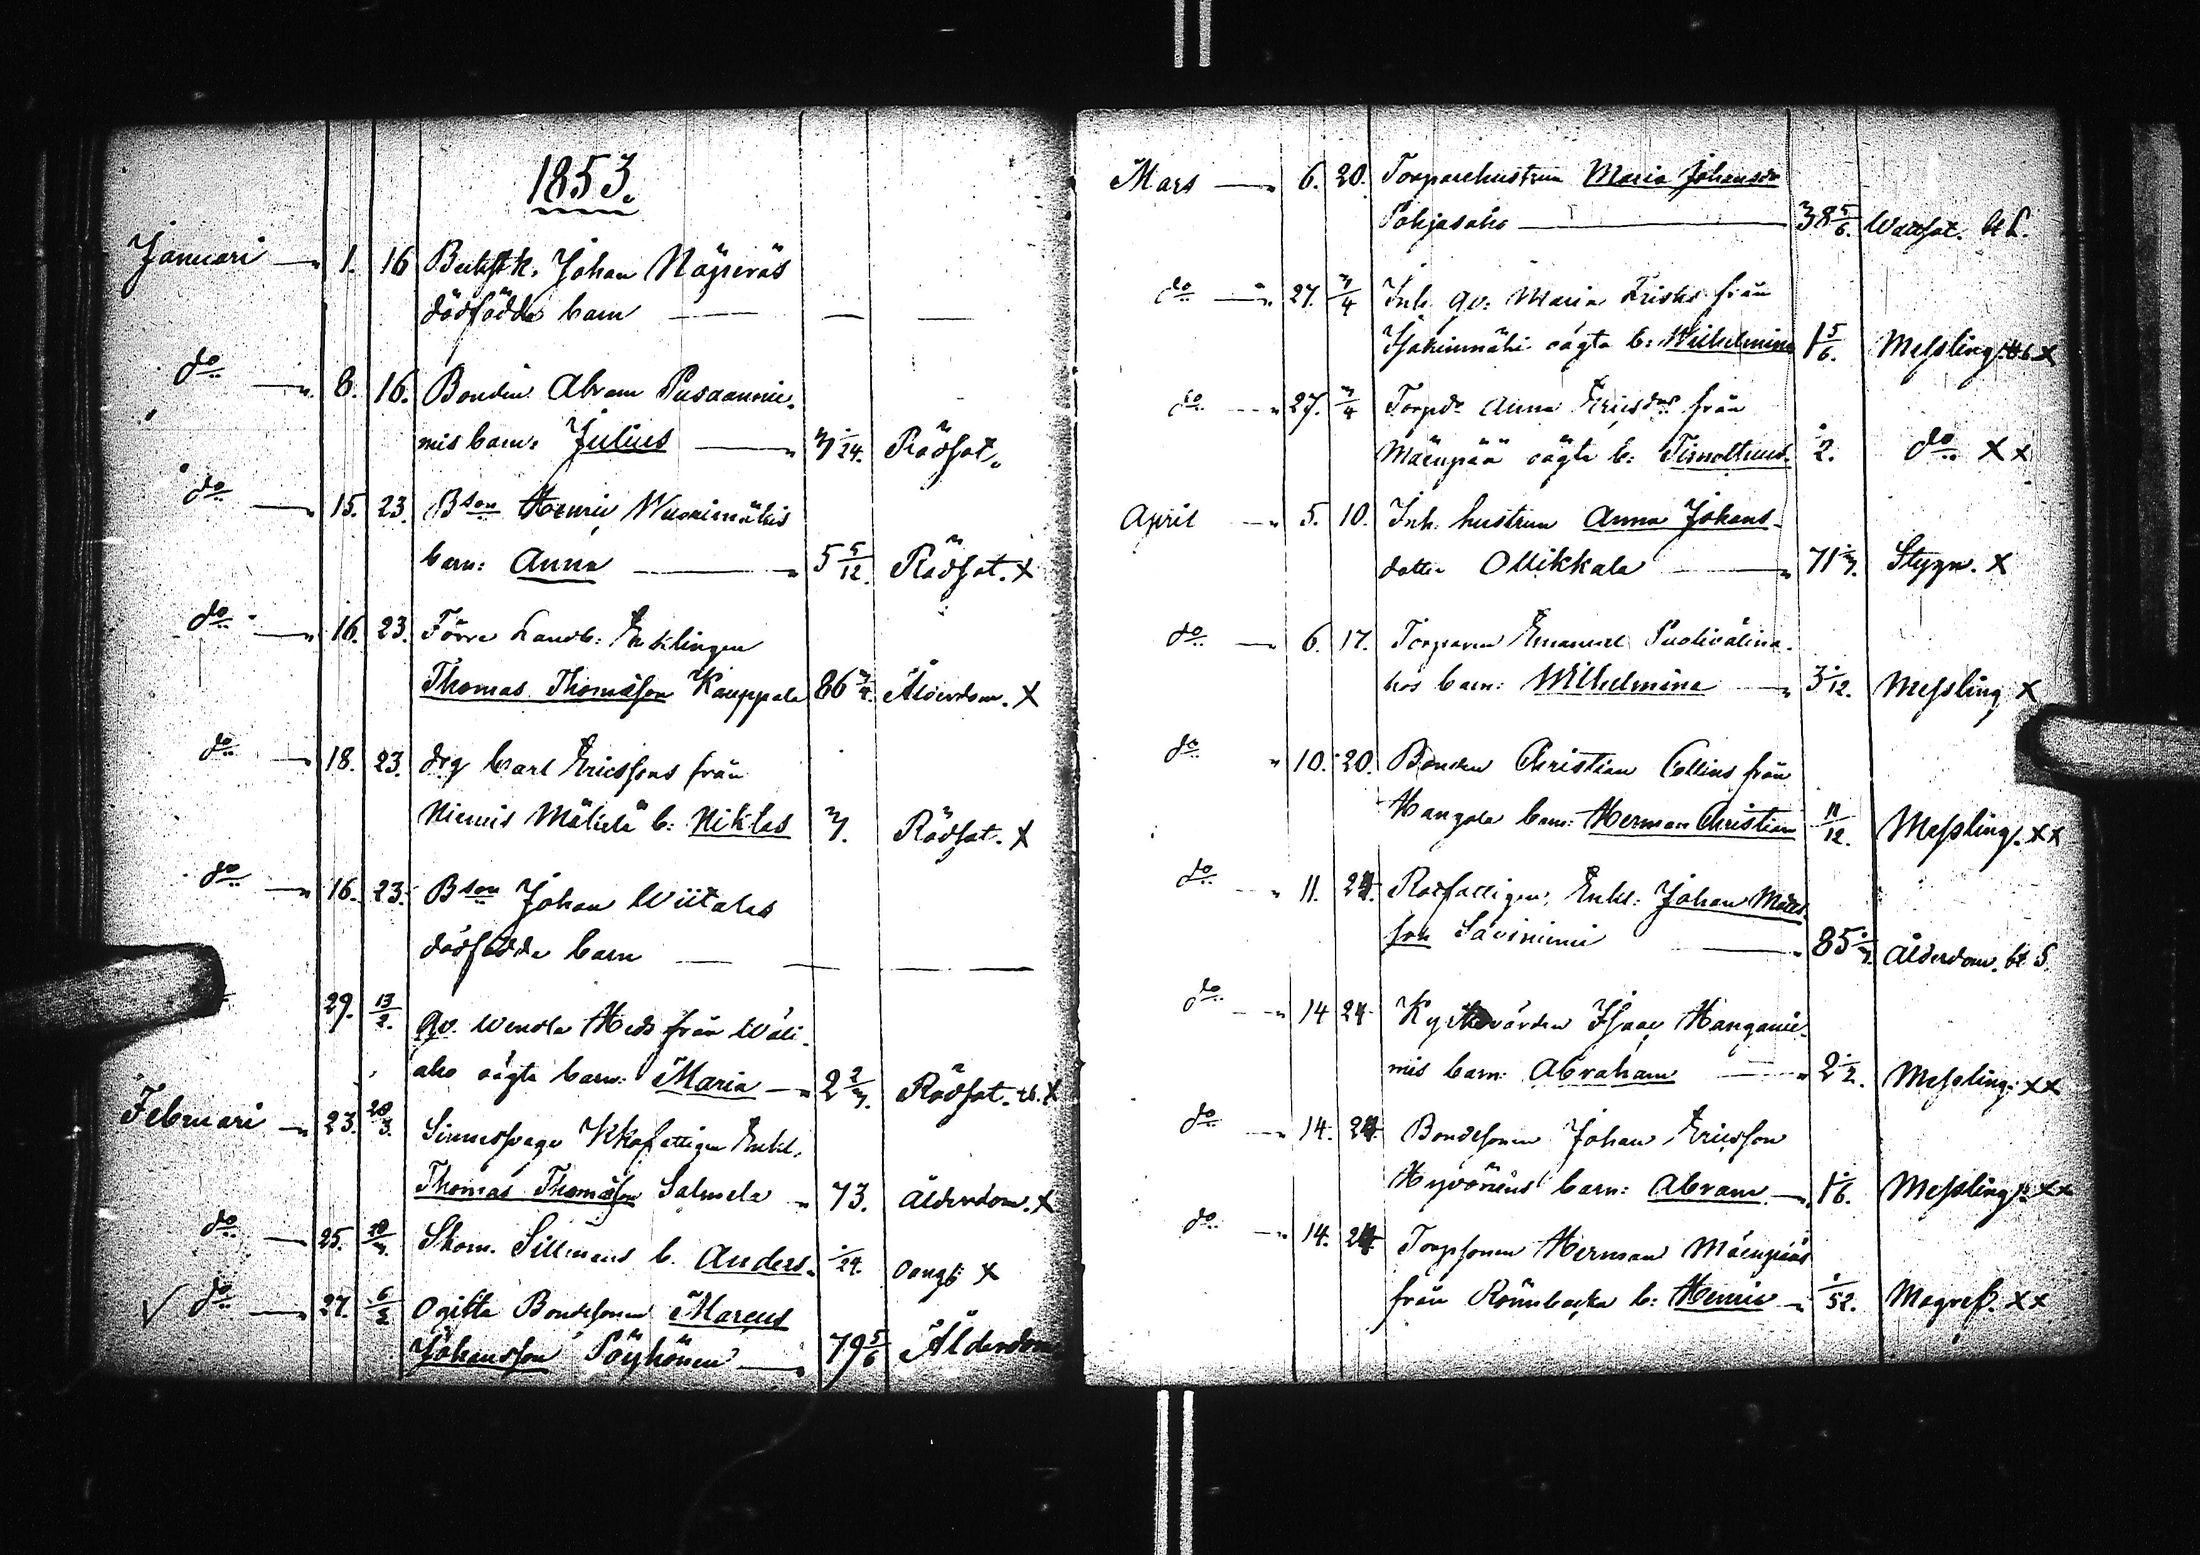 1853.
Januari 1. 16 Johan Näsreräs
dödfödda barn
do 8. 16. Bonden Abram Pusaannie-
mis barn: Julius 24. Rödsot.
do 15. 23. Bson Henric Wuorimäkis
barn: Anna 5 5/12. Rödsot. X
do 16. 23. Förre Landb: Enklingen
Thomas Thomasson Kauppala 86 3/4. Ålderdom. X
do 18. 23. drg Carl Ericssons från
Niemis Mäkelä b: Niklas Rödsot. X
do 16. 23. Bson Johan Wiitalas
dödfödda barn
29. 13/2. Qv. Wendla Heds från Wäli-
aho oägta barn: Maria Rödsot. X
Februari 23. 20/3. Sinnessvage Enkl.
Thomas Thomasson Salmela 73. Ålderdom. X
do 25. Skom. Sillmans b. Anders. 1/24. X
do 27. 6/3 Ogifta Bondesonen Marcus
Johansson Pöyhönen 79 5/6 Ålderdom
Mars 6. 20. Torparehustrun Maria Johansdr
Pohjasaho 38 5/6. Wattsot.
do 27. Inh. qv: Maria från
oägta b: Wilhelmina 1 5/6. Messling X
do 27. Torpdr Anna Ericsdr från
Mäenpää oägta b: Timotheus. 1/2. do X X
April 5. 10. Inh. hustrun Anna Johans-
dotter Ollikkala 71 Stygn. X
do 6. 17. Torparen Emanuel Puolivälina-
hos barn: Wilhelmina 3 1/12. Messling X
do 10. 20. Bonden Christian Collins från
Kangola barn: Herman Christian 11/12. Messling. X X
do 11. 24. Rotfattigen, Enkl: Johan Matts
son Saviniemi 85 Ålderdom.
do 14 24 Isaac Kangannie-
mis barn: Abraham 2 1/2. Messling. X X
do 14. 24 Bondesonen Johan Ericsson
Hyvönens barn: Abram 1 1/6. Messling. X X
do 14. 24 Torpsonen Herman Mäenpääs
från Rönnbacka b: Henric 1/52. Magref. X X